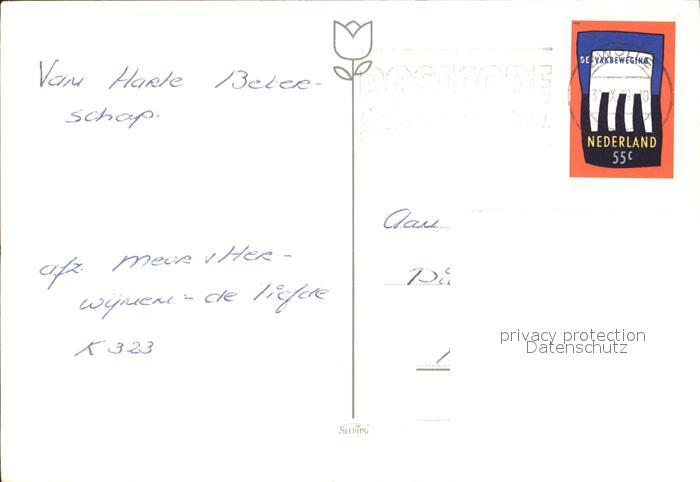 Van Harte Beter-
schap.
afz. Mevr v Her-
wijnen - de Liefde
K 323
POSTCODE
DE VAKBEWEGING
NEDERLAND
55c
Aan
privacy protection
Datenschutz
SLEDING